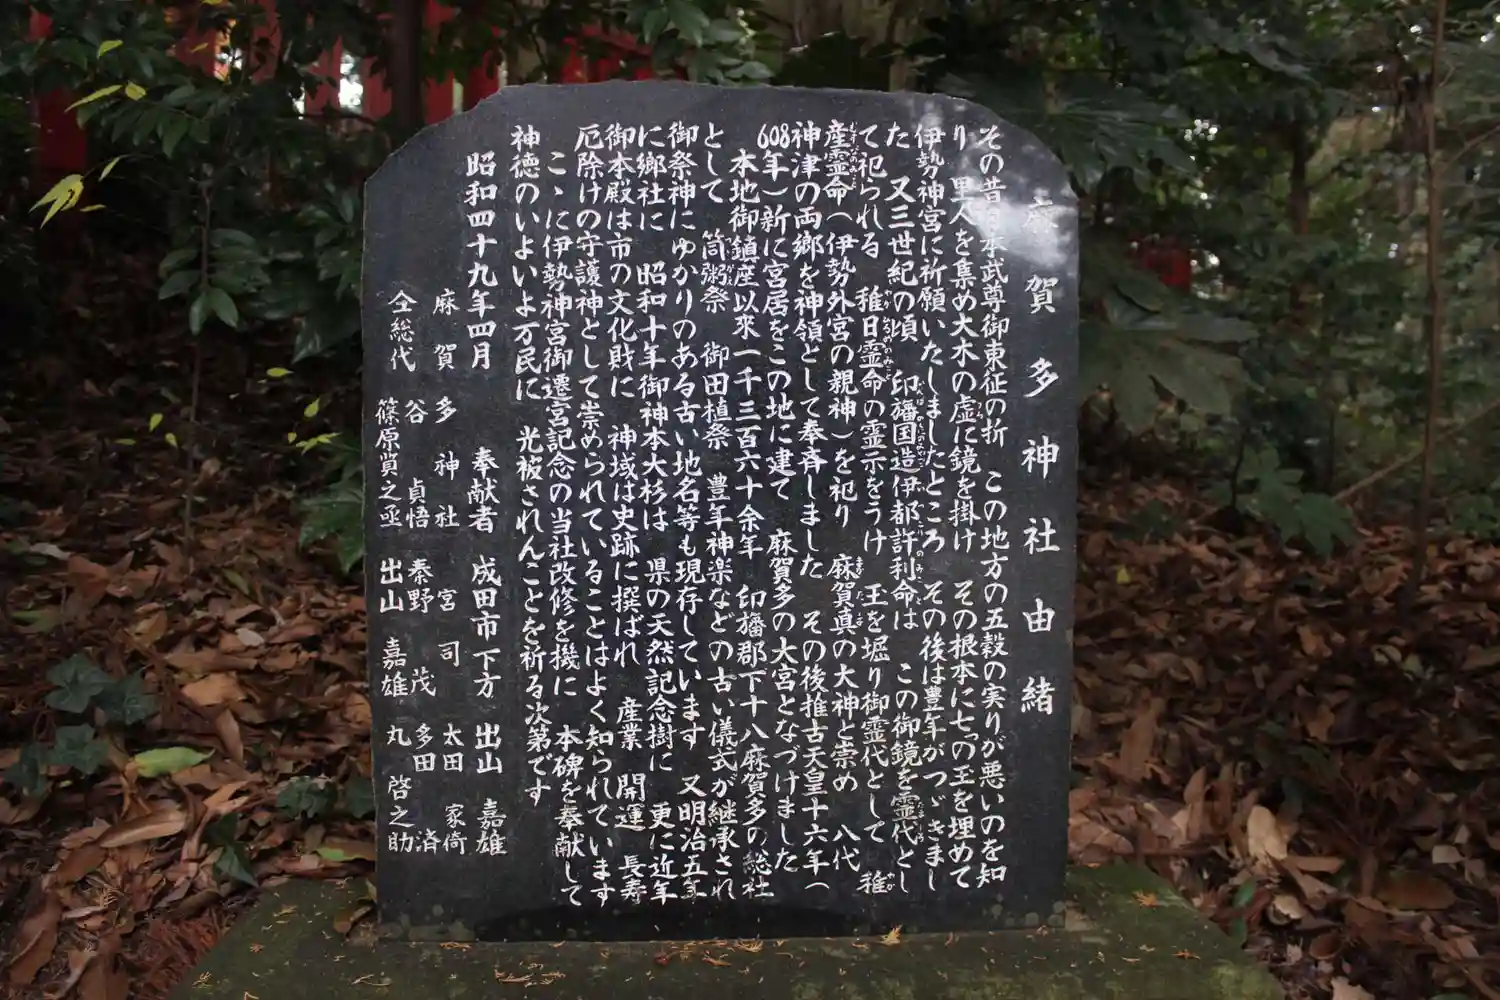 麻賀多神社由緒
その昔日本武尊御東征の折　この地方の五穀の実りが悪いのを知
り　里人を集め大木の虚に鏡を掛け　その根本に七つの玉を埋めて
伊勢神宮に祈願いたしましたところ　その後は豊年がつゞきまし
た　又三世紀の頃　印旛国造伊都許利命は　この御鏡を霊代とし
て祀られる　稚日霊命の霊示をうけ　玉を堀り御霊代として　稚
産霊命（伊勢外宮の親神）を祀り　麻賀眞の大神と崇め　八代
神津の両郷を神領として奉斉しました　その後推古天皇十六年（
608年）新に宮居をこの地に建て　麻賀多の大宮となづけました
本地御鎮座以來一千三百六十余年　印旛郡下十八麻賀多の総社
として　筒粥祭　御田植祭　豊年神楽などの古い儀式が継承され
御祭神にゆかりのある古い地名等も現存しています　又明治五年
に郷社に　昭和十年御神木大杉は　県の天然記念樹に　更に近年
御本殿は市の文化財に　神域は史跡に撰ばれ　産業　開運　長寿
厄除けの守護神として崇められていることはよく知られています
こゝに伊勢神宮御遷宮記念の当社改修を機に　本碑を奉献して
神徳のいよいよ万民に　光被されんことを祈る次第です
昭和四十九年四月　奉献者　成田市下方　出山　嘉雄
麻賀多神社　宮司　太田　家倚
仝総代　谷　貞悟　秦野　茂　多田　済
篠原賞之亟　出山　嘉雄　丸　啓之助